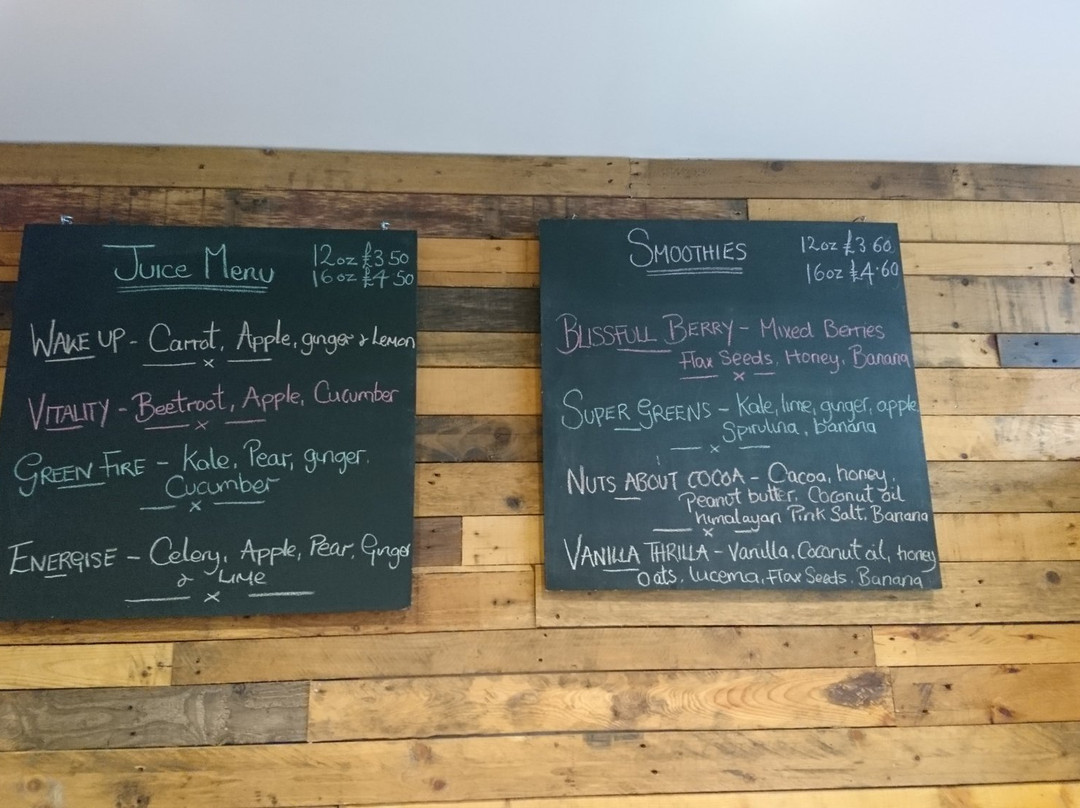 Juice Menu 12oz £3.50
16oz £4.50
WAKE UP - Carrot, Apple, ginger & Lemon
x
VITALITY - Beetroot, Apple, Cucumber
x
GREEN FIRE - Kale, Pear, ginger,
Cucumber
x
ENERGISE - Celery, Apple, Pear, Ginger
& LIME
x
SMOOTHIES 12oz £3.60
16oz £4.60
BLISSFULL BERRY - Mixed Berries
Flax Seeds, Honey, Banana
x
SUPER GREENS - Kale, lime, ginger, apple
Spirulina, banana
x
NUTS ABOUT COCOA - Cacoa, honey,
Peanut butter, Coconut oil
himalayan Pink Salt, Banana
x
VANILLA THRILLA - Vanilla, Coconut oil, honey
Oats, lucema, Flax Seeds, Banana